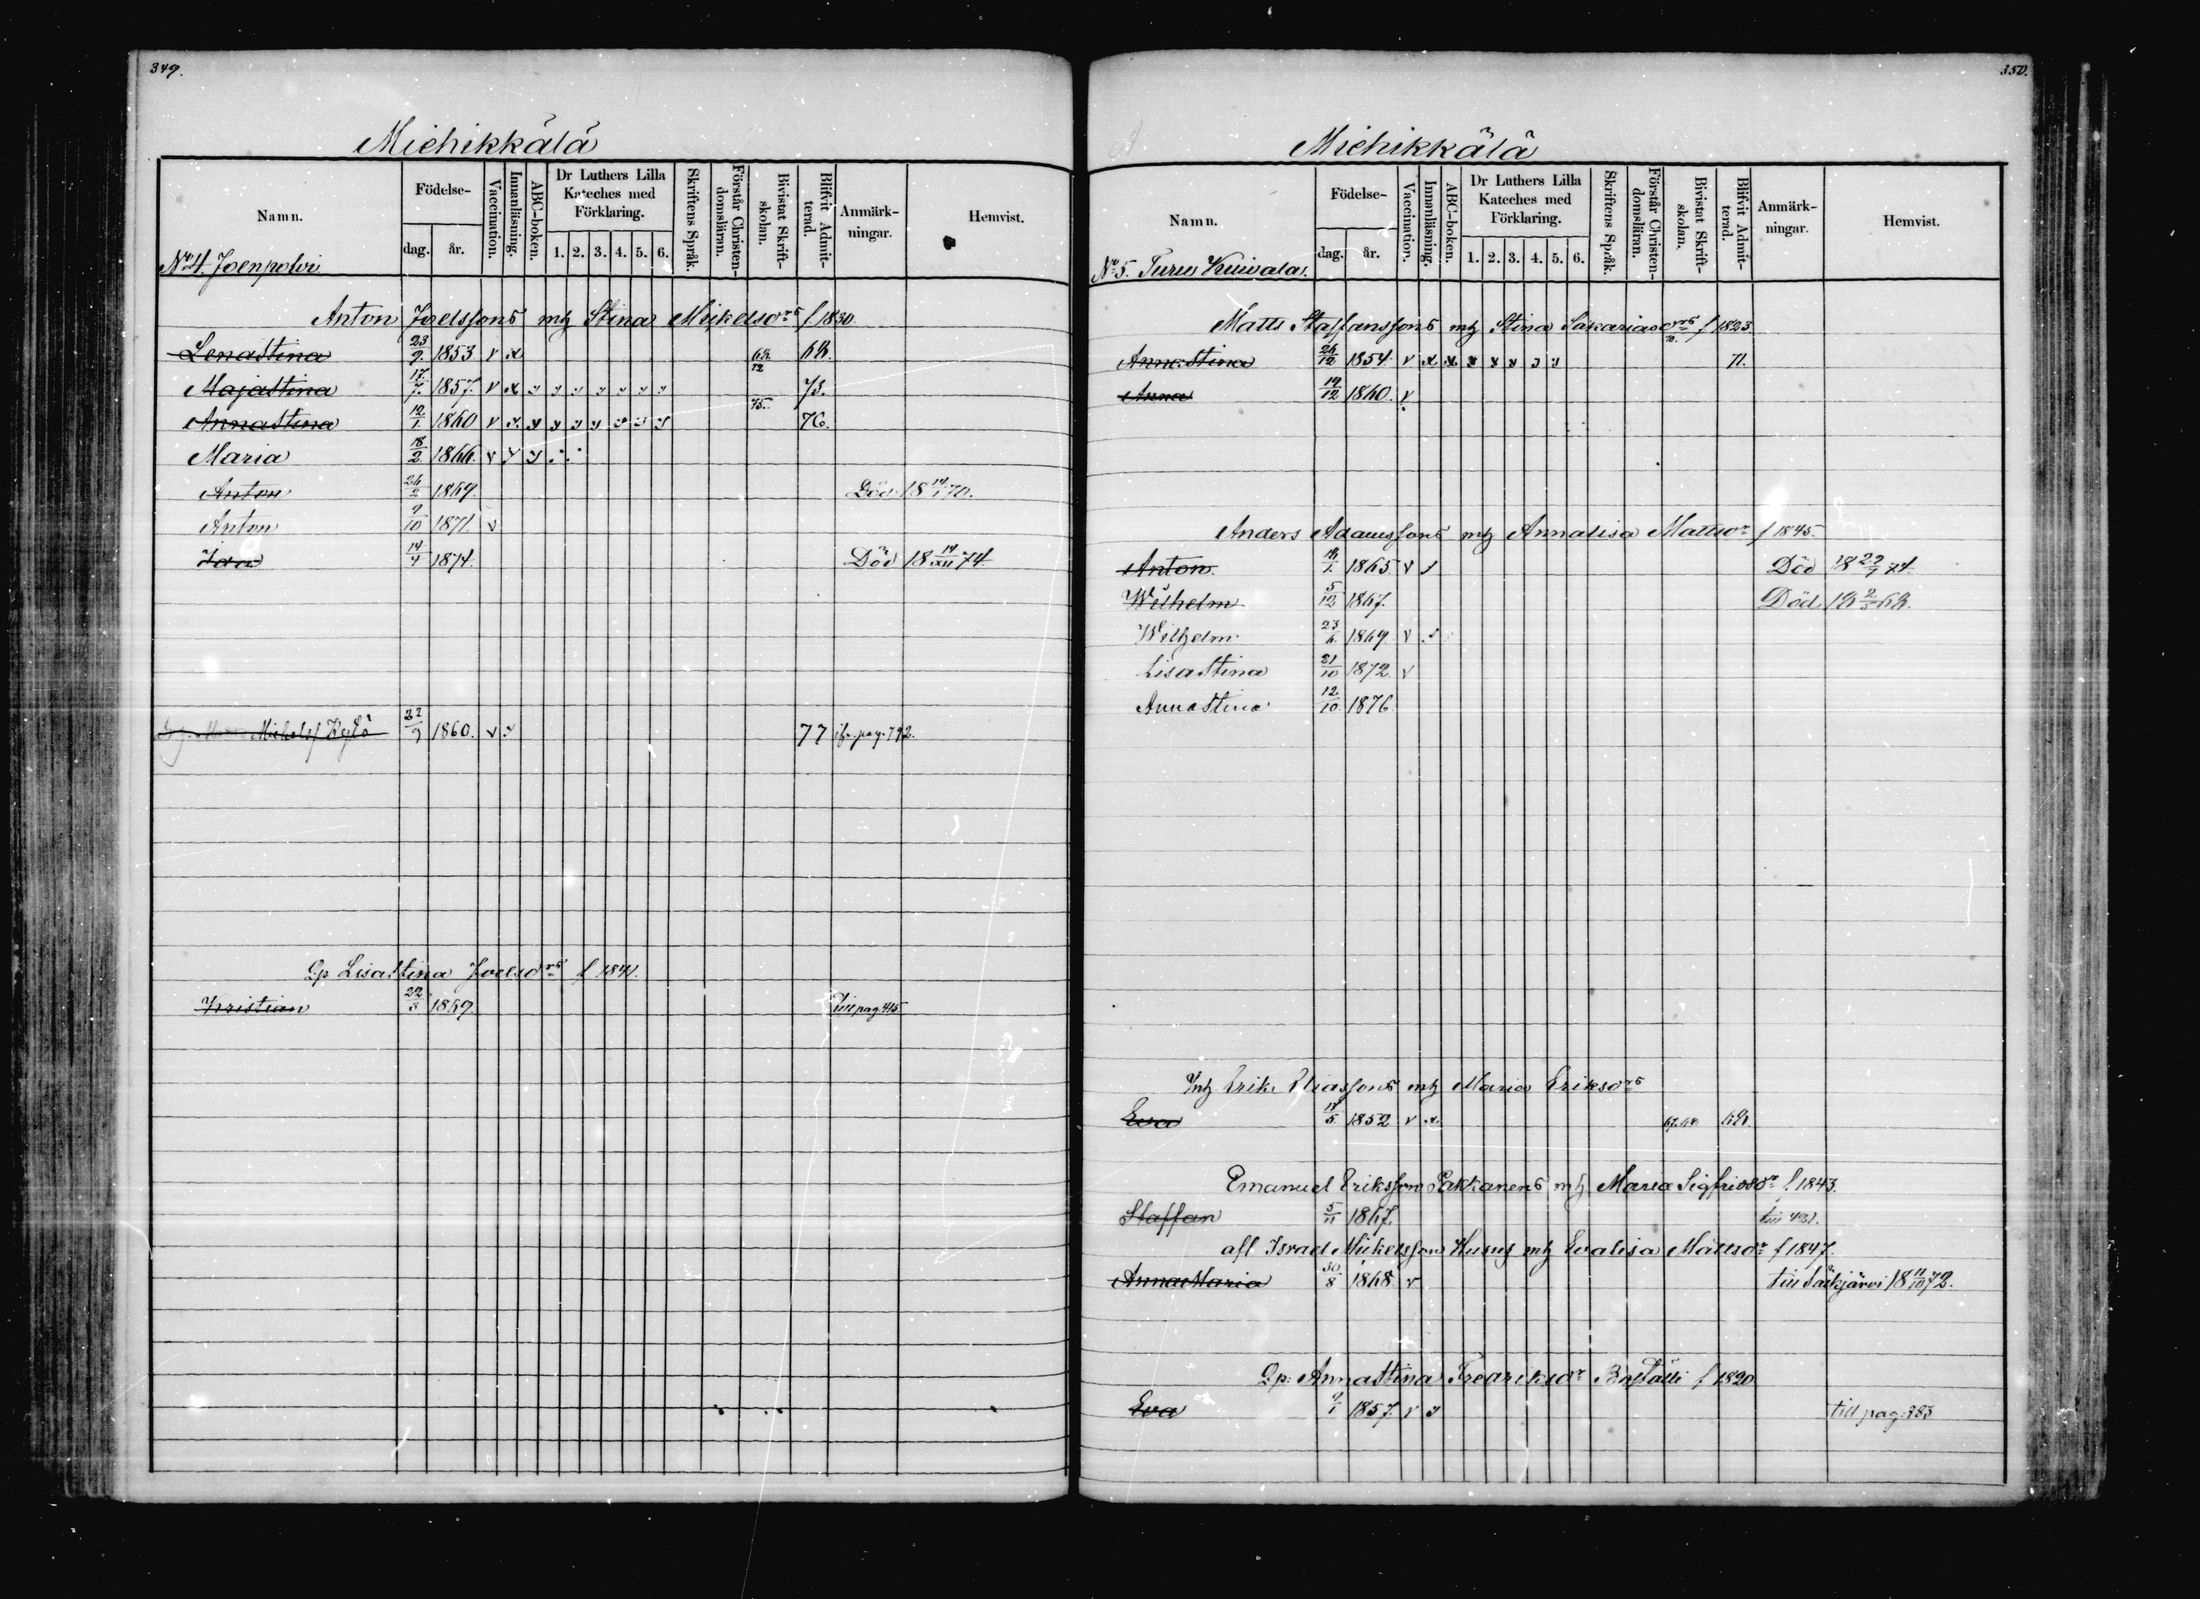 349.
Miehikkälä
Namn.
Födelse-
dag.
år.
Vaccination.
Innanläsning.
ABC-boken.
Dr Luthers Lilla Kateches med Förklaring.
1. 2. 3. 4. 5. 6.
Skriftens Språk.
Förstår Christen-domsläran.
Bivistat Skrift-skolan.
Blifvit Admit-terad.
Anmärk-ningar.
Hemvist.
No 4. Joenpolvi
Anton Joelssons mh Stina Mickelsdrs f 1830.
Lenastina 23/9. 1853 v x 68. 68.
Majastina 17/7. 1857. v x 73.
Annastina 12/1. 1860 v x 75. 76.
Maria 18/2. 1866. v
Anton 26/2 1869. Död 18 14/1 70.
Anton 9/10 1871. v
Ida 14/4 1874. Död 18 14/XII 74
Michelsf Kylä 1860. v 77 ifr. pag. 792.
Qp Lisastina Joelsdrs f 1841.
Kristian 22/3 1869. till pag 415
350.
Miehikkälä
Namn.
Födelse-
dag.
år.
Vaccination.
Innanläsning.
ABC-boken.
Dr Luthers Lilla Kateches med Förklaring.
1. 2. 3. 4. 5. 6.
Skriftens Språk.
Förstår Christen-domsläran.
Bivistat Skrift-skolan.
Blifvit Admit-terad.
Anmärk-ningar.
Hemvist.
No 5. Turu Kuivala.
Matts Staffanssons mh Stina Sakariasdrs f 1823
Annastina 26/12 1854 v x x 70. 71.
Anna 19/12 1860. v
Anders Adamssons mh Annalisa Mattsdr f 1845.
Anton. 1865. v Död 18 74.
Wilhelm 5/12 1867. Död 18 2/5 68.
Wilhelm 23/6. 1869. v
Lisastina 21/10 1872. v
Annastina 12/10. 1876.
Inh Erik Eliassons mh Maria Eriksdrs
Eva 1852 v x 67.68 68.
Emanuel Eriksson Pakkanens mh Maria Sigfridsdr f. 1843.
Staffan 5/11 1867. till 431.
afl Israel Mickelssons Husus mh Evalisa Mattsdr f 1847.
Annamaria 30/8 1868. v till Säkjärvi 18 11/10 72.
Qp: Annastina Fredriksdr f 1820
Eva 9/1 1857. v till pag: 383